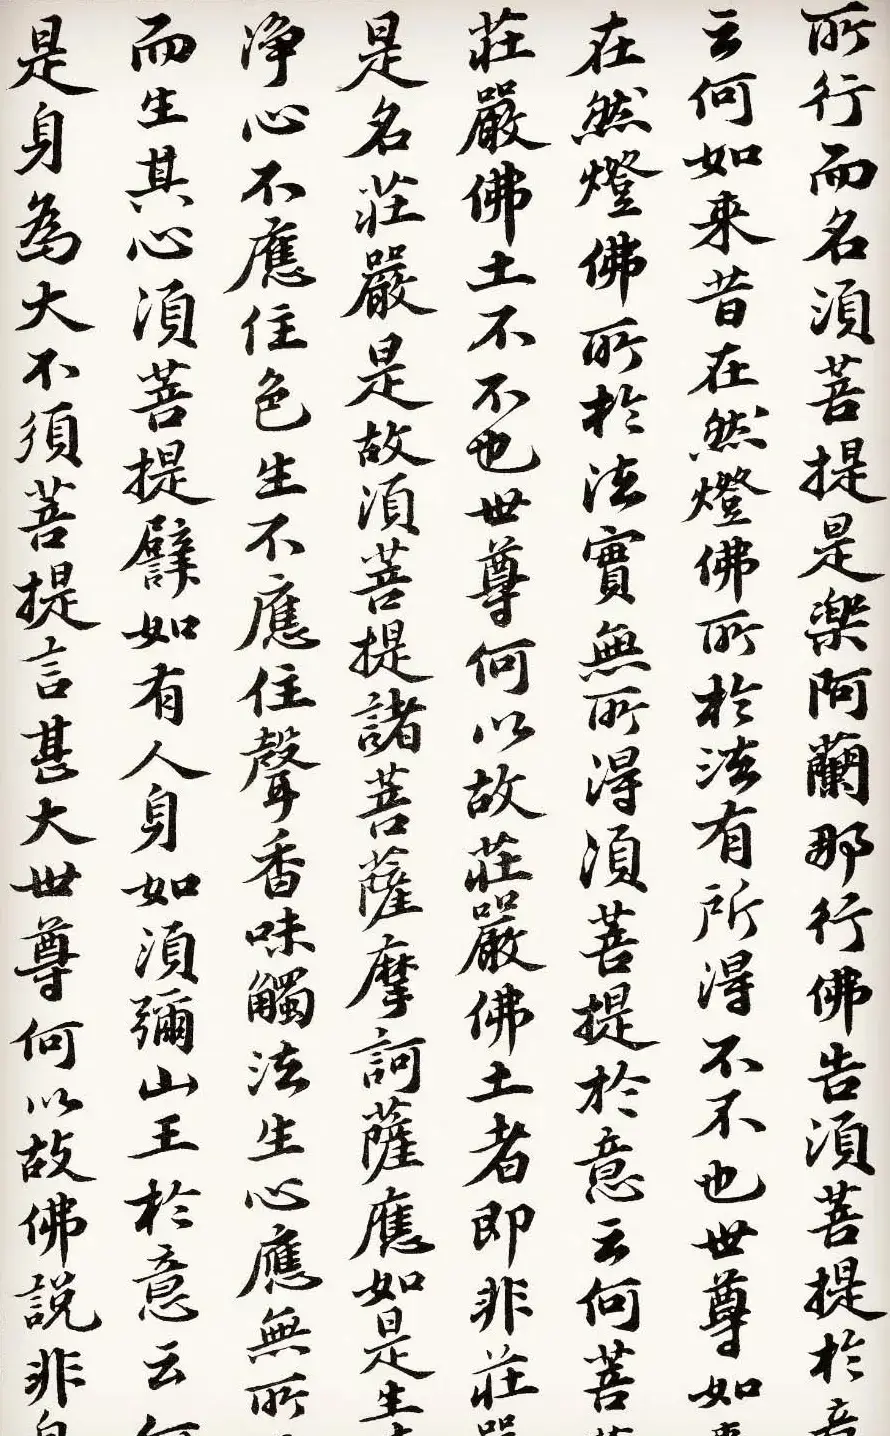 所行而名須菩提是樂阿蘭那行佛告須菩提於意
云何如来昔在然燈佛所於法有所得不不也世尊如来
在然燈佛所於法實無所得須菩提於意云何菩薩
莊嚴佛土不不也世尊何以故莊嚴佛土者即非莊嚴
是名莊嚴是故須菩提諸菩薩摩訶薩應如是生清
净心不應住色生不應住聲香味觸法生心應無所
而生其心須菩提譬如有人身如須彌山王於意云何
是身為大不須菩提言甚大世尊何以故佛説非身